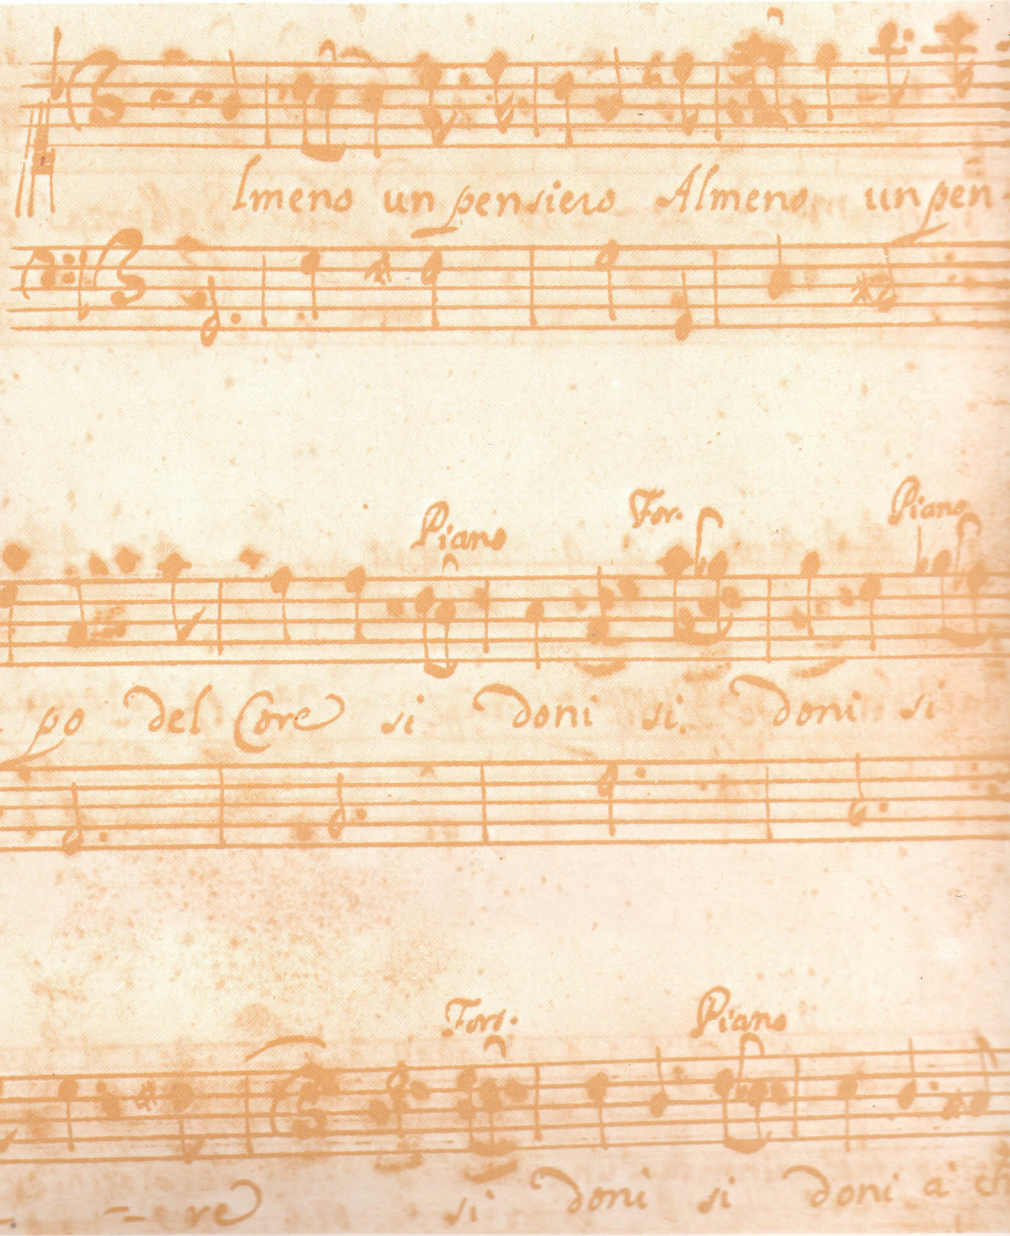 Almeno un pensiero Almeno un pen-
Piano For. Piano
- po del Core si doni si doni si
Fort. Piano
- -- re si doni si doni a ch